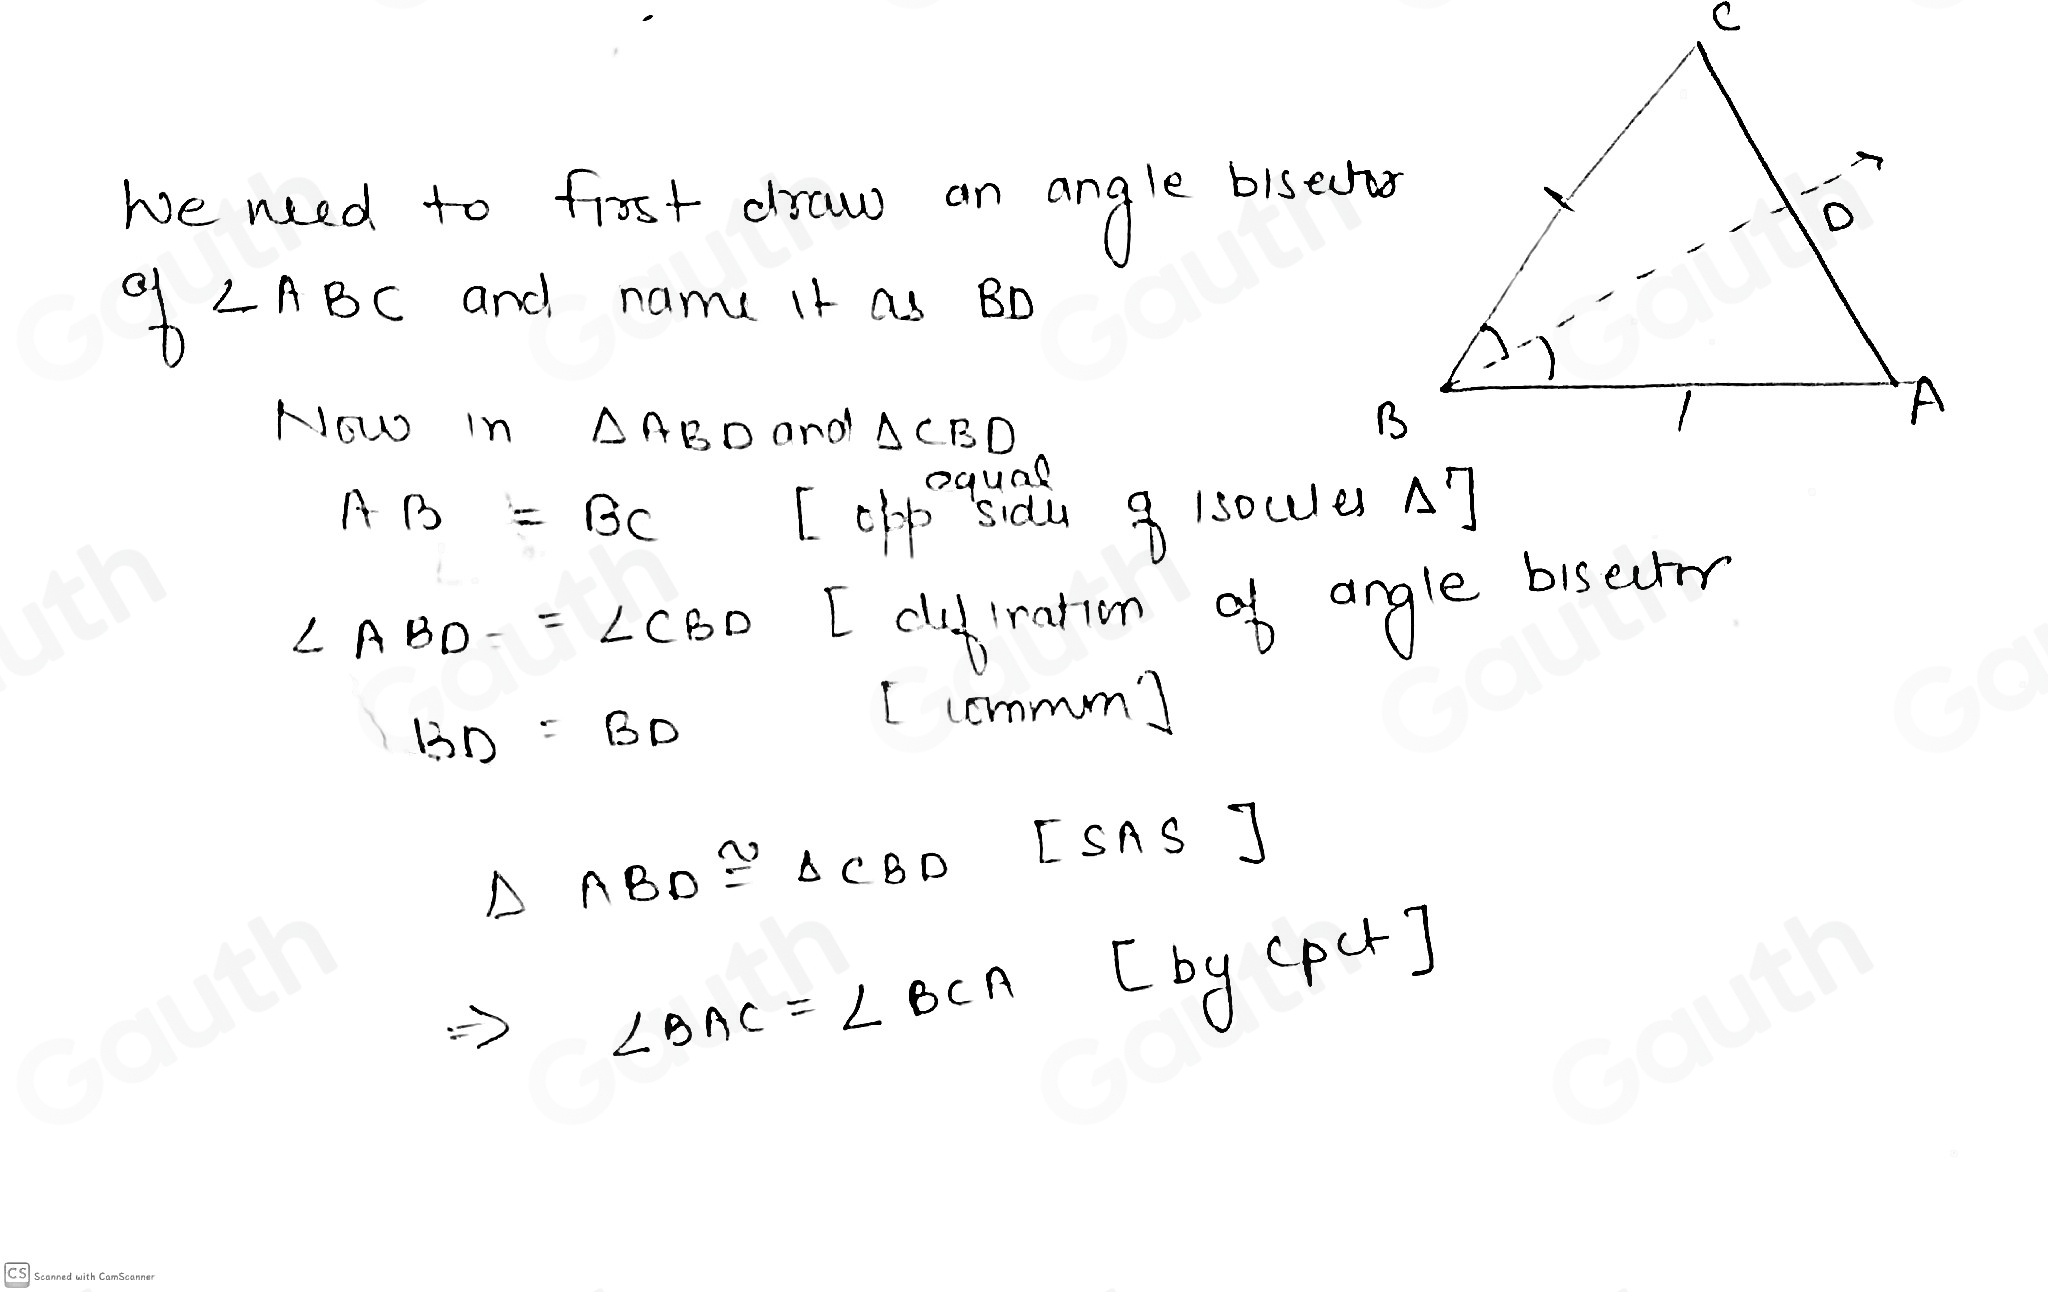 C
We need to first draw an angle bisector
D
of ∠ABC and name it as BD
B
A
Now in ΔABD and ΔCBD
AB = BC [opp equal sides of isosceles Δ]
∠ABD = ∠CBD [defination of angle bisector
BD = BD [common]
Δ ABD ≅ ΔCBD [SAS]
=> ∠BAC = ∠BCA [by cpct]
CS Scanned with CamScanner
Gauth